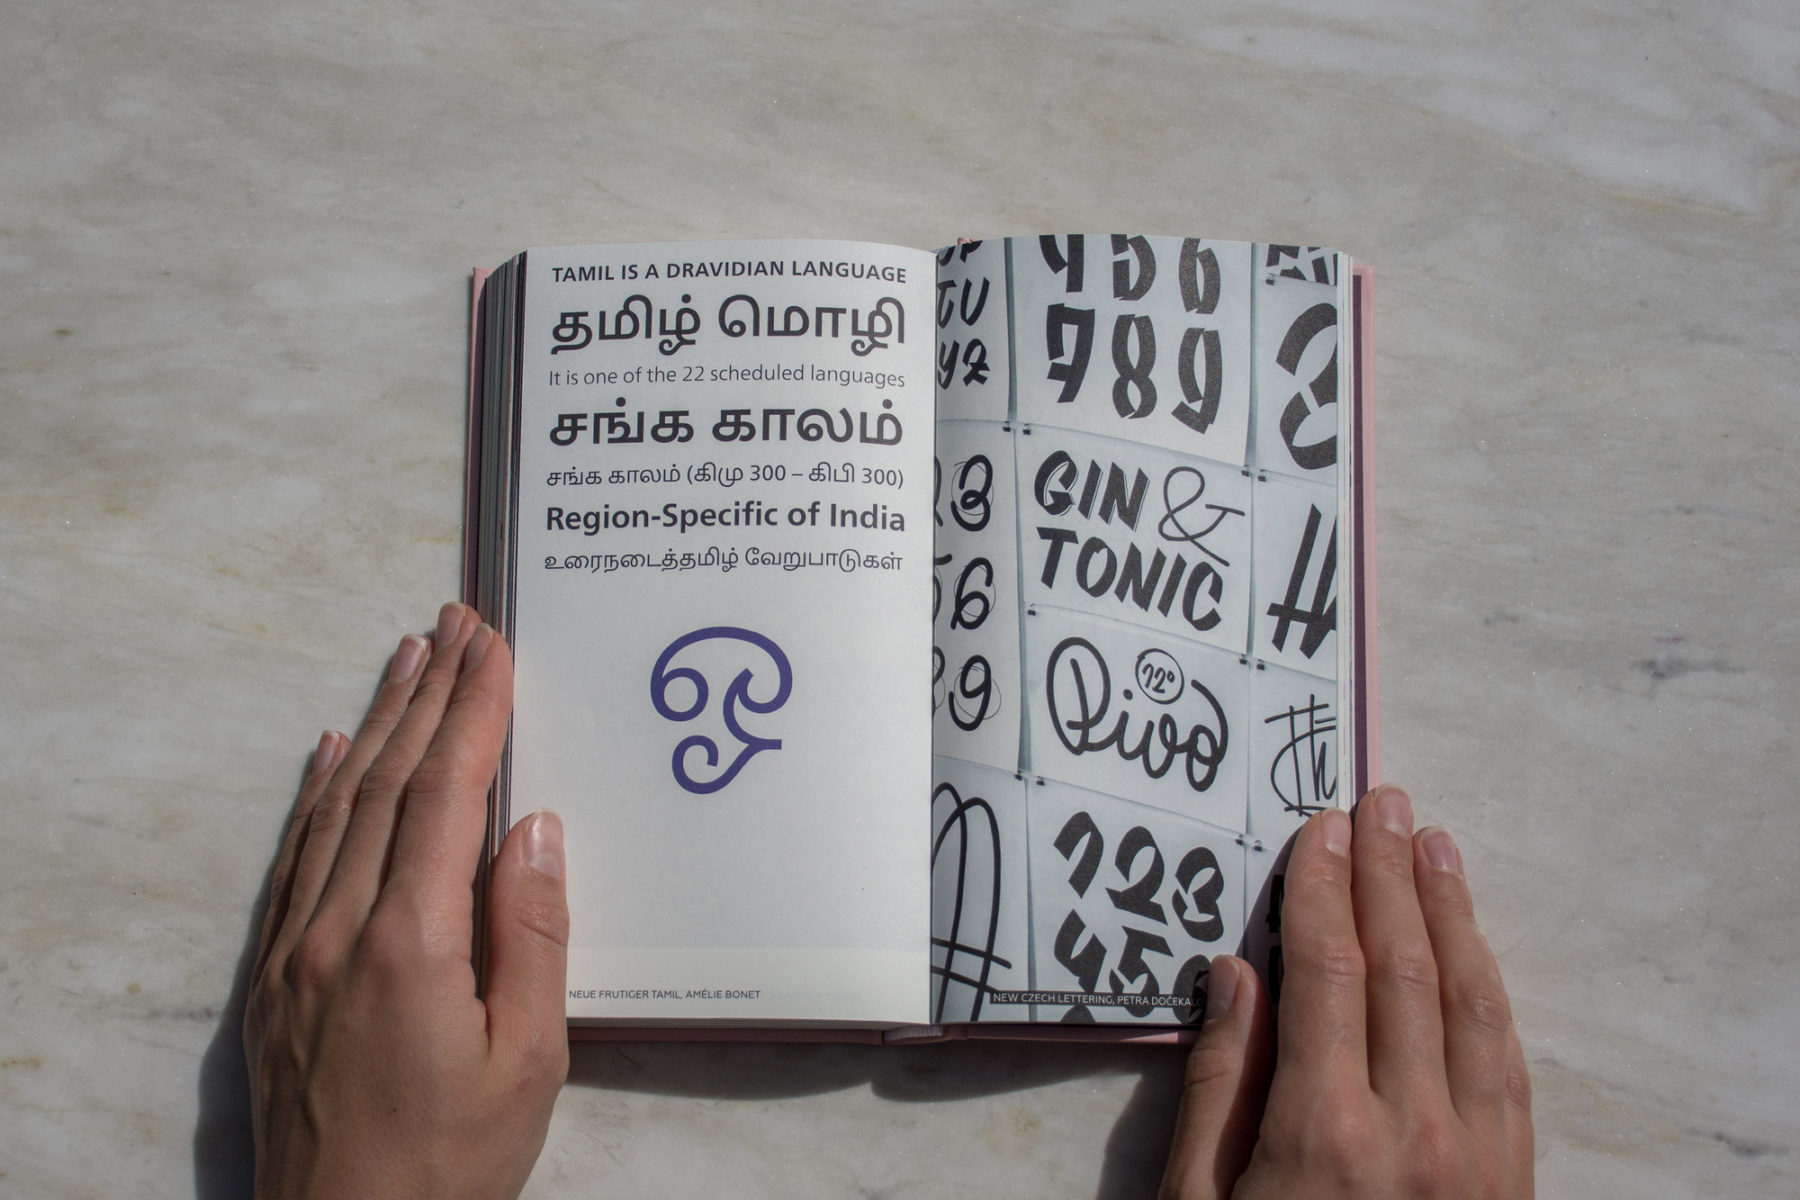 TAMIL IS A DRAVIDIAN LANGUAGE
தமிழ் மொழி
It is one of the 22 scheduled languages
சங்க காலம்
சங்க காலம் (கிமு 300 – கிபி 300)
Region-Specific of India
உரைநடைத்தமிழ் வேறுபாடுகள்
ஒ
NEUE FRUTIGER TAMIL, AMÉLIE BONET
TU
yz
3
6
9
456
789
GIN &
TONIC
12°
Pivo
123
45
NEW CZECH LETTERING, PETRA